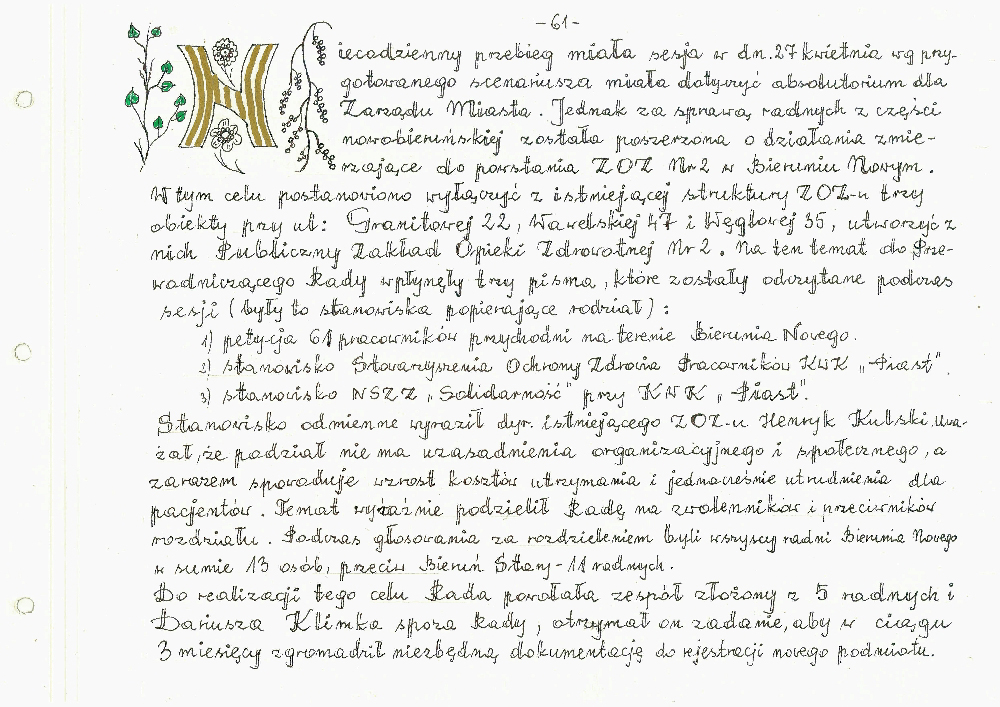 -61-
Niecodzienny przebieg miała sesja w dn. 27 kwietnia wg przy-
gotowanego scenariusza miała dotyczyć absolutorium dla
Zarządu Miasta. Jednak za sprawą radnych z części
nowobieruńskiej została poszerzona o działania zmie-
rzające do powstania ZOZ Nr 2 w Bieruniu Nowym.
W tym celu postanowiono wyłączyć z istniejącej struktury ZOZ-u trzy
obiekty przy ul: Granitowej 22, Wawelskiej 47 i Węglowej 35, utworzyć z
nich Publiczny Zakład Opieki Zdrowotnej Nr 2. Na ten temat do Prze-
wodniczącego Rady wpłynęły trzy pisma, które zostały odczytane podczas
sesji (były to stanowiska popierające rodział):
1) petycja 61 pracowników przychodni na terenie Bierunia Nowego.
2) stanowisko Stowarzyszenia Ochrony Zdrowia Pracowników KWK „Piast".
3) stanowisko NSZZ „Solidarność" przy KWK „Piast".
Stanowisko odmienne wyraził dyr. istniejącego ZOZ-u Henryk Kulski. Uwa-
żał, że podział nie ma uzasadnienia organizacyjnego i społecznego, a
zarazem spowoduje wzrost kosztów utrzymania i jednocześnie utrudnienia dla
pacjentów. Temat wyraźnie podzielił Radę na zwolenników i przeciwników
rozdziału. Podczas głosowania za rozdzieleniem byli wszyscy radni Bierunia Nowego
w sumie 13 osób, przeciw Bieruń Stary - 11 radnych.
Do realizacji tego celu Rada powołała zespół złożony z 5 radnych i
Dariusza Klimka spoza Rady, otrzymał on zadanie, aby w ciągu
3 miesięcy zgromadził niezbędną dokumentację do rejestracji nowego podmiotu.